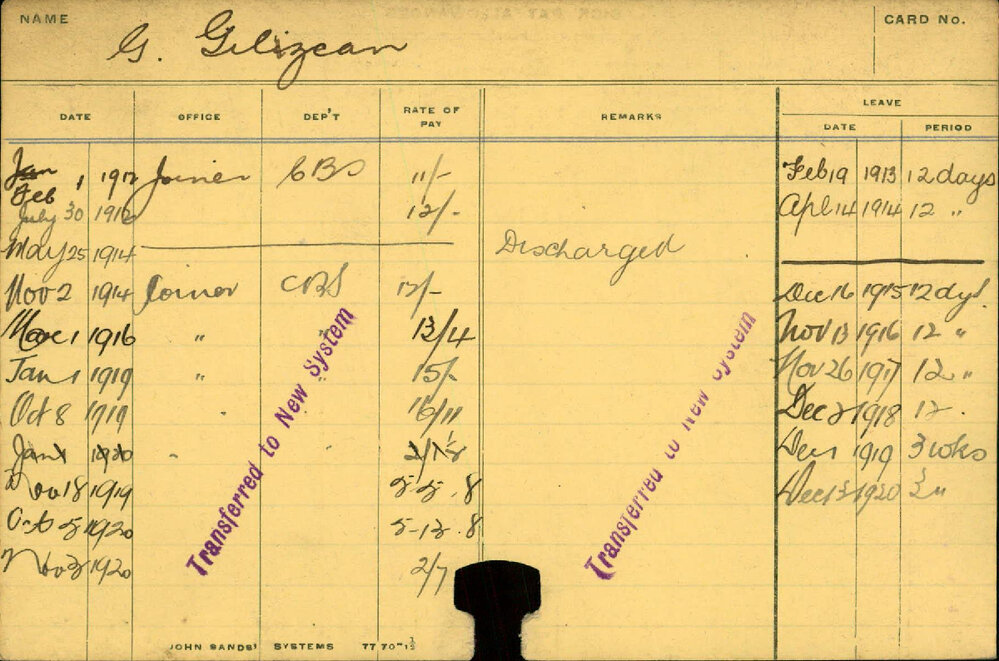 NAME
G. Gilizean
CARD No.
DATE OFFICE DEP'T RATE OF PAY REMARKS LEAVE
DATE PERIOD
Feb 1 1912 Joiner CBS 11/- Feb 19 1913 12 days
July 30 1912 12/- Apl 14 1914 12 "
May 25 1914 Discharged
Nov 2 1914 Joiner CBS 12/- Dec 16 1915 12 dys.
Mar 1 1916 " " 13/4 Nov 13 1916 12 "
Jan 1 1919 " " 15/- Nov 26 1917 12 "
Oct 8 1919 " 16/11 Dec 2 1918 12 "
Jan 1 1920 " Dec 1 1919 3 wks
Nov 18 1919 5-5.8 Dec 13 1920 3 "
Oct 5 1920 5-13.8
Nov 3 1920 2/7
Transferred to New System
Transferred to New System
JOHN SANDS' SYSTEMS